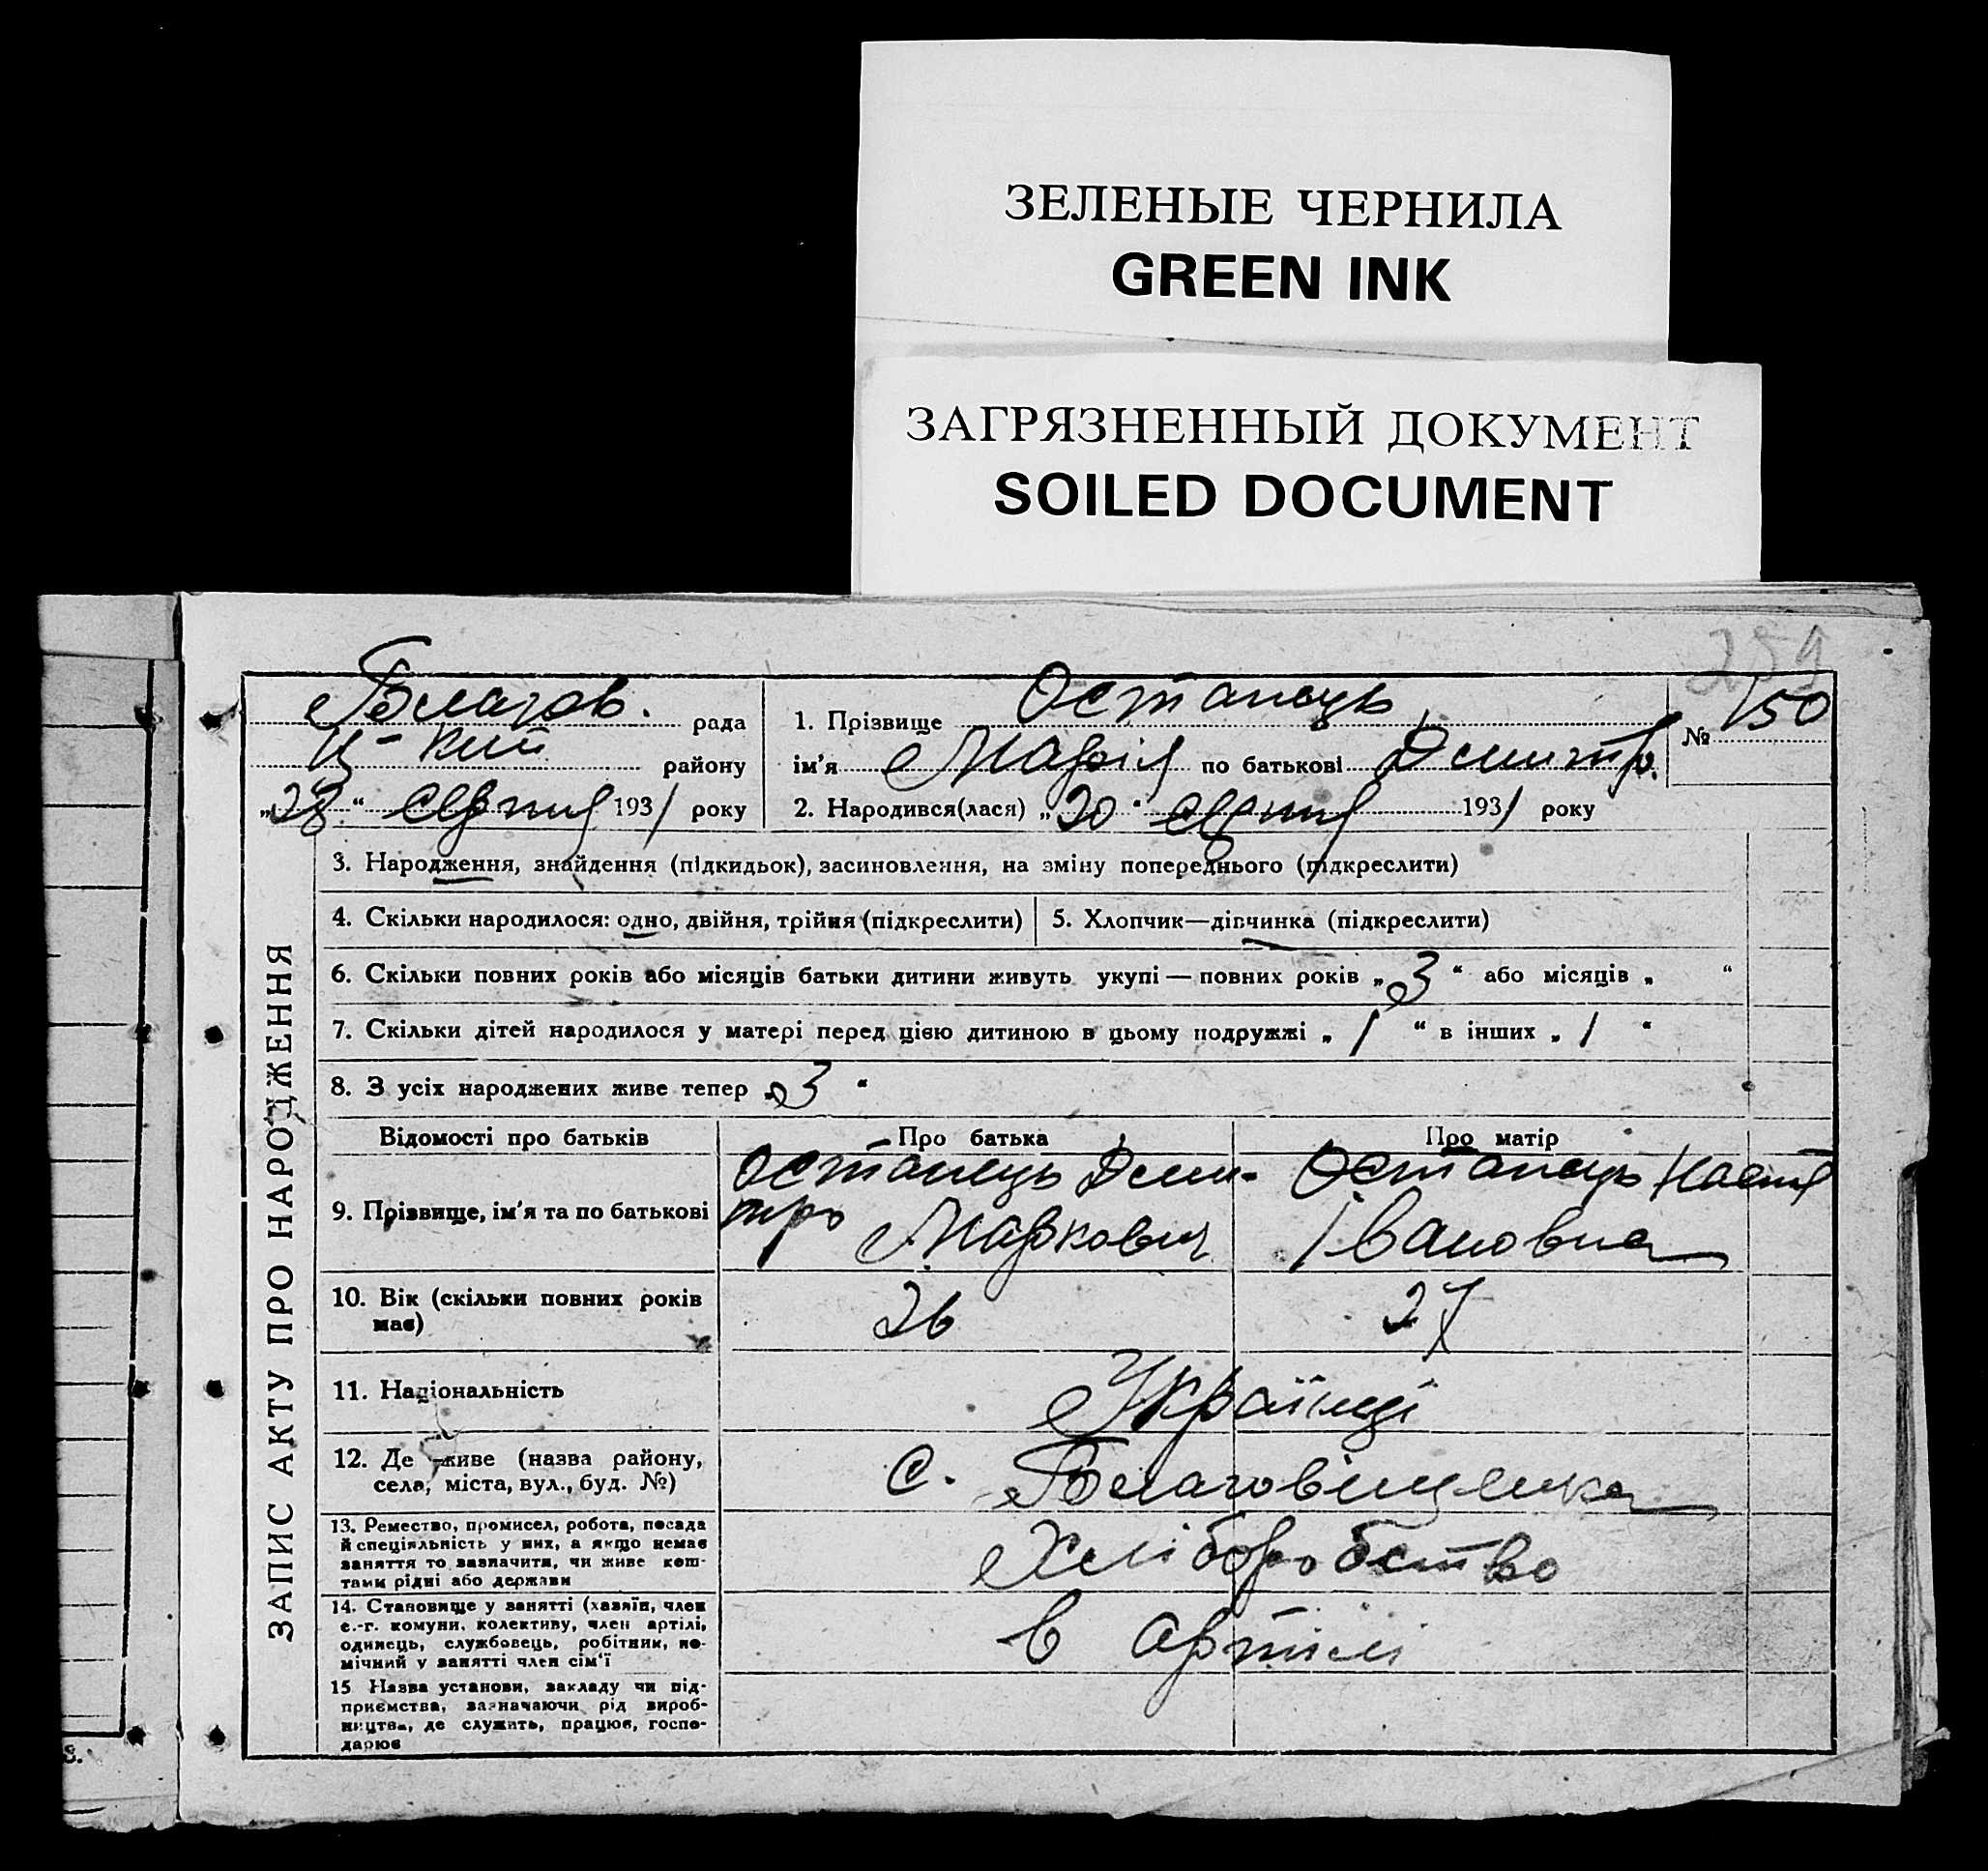 ЗЕЛЕНЫЕ ЧЕРНИЛА
GREEN INK
ЗАГРЯЗНЕННЫЙ ДОКУМЕНТ
SOILED DOCUMENT
259
Благов. рада
Ц-кий району
„28“ серпня 1931 року
1. Прізвище Останець
ім'я Марія по батькові Дмитр.
№ 150
2. Народився(лася) „20“ серпня 1931 року
ЗАПИС АКТУ ПРО НАРОДЖЕННЯ
3. Народження, знайдення (підкидьок), засиновлення, на зміну попереднього (підкреслити)
4. Скільки народилося: одно, двійня, трійня (підкреслити)
5. Хлопчик—дівчинка (підкреслити)
6. Скільки повних років або місяців батьки дитини живуть укупі — повних років „3“ або місяців „ “
7. Скільки дітей народилося у матері перед цією дитиною в цьому подружжі „1“ в інших „1“
8. З усіх народжених живе тепер „3“
Відомості про батьків Про батька Про матір
9. Прізвище, ім'я та по батькові
Останець Дми-
тро Маркович
Останець Настя
Івановна
10. Вік (скільки повних років
має)
26
27
11. Національність
Українці
12. Де живе (назва району,
села, міста, вул., буд. №)
с. Благовіщенка
13. Ремество, промисел, робота, посада
й спеціяльність у них, а якщо немає
заняття то зазначити, чи живе кош-
тами рідні або держави
Хліборобство
14. Становище у занятті (хазяїн, член
с.-г. комуни, колективу, член артілі,
одинець, службовець, робітник, по-
мічний у занятті член сім'ї
в артілі
15 Назва установи, закладу чи під-
приємства, зазначаючи рід вироб-
ництва, де служить, працює, госпо-
дарює